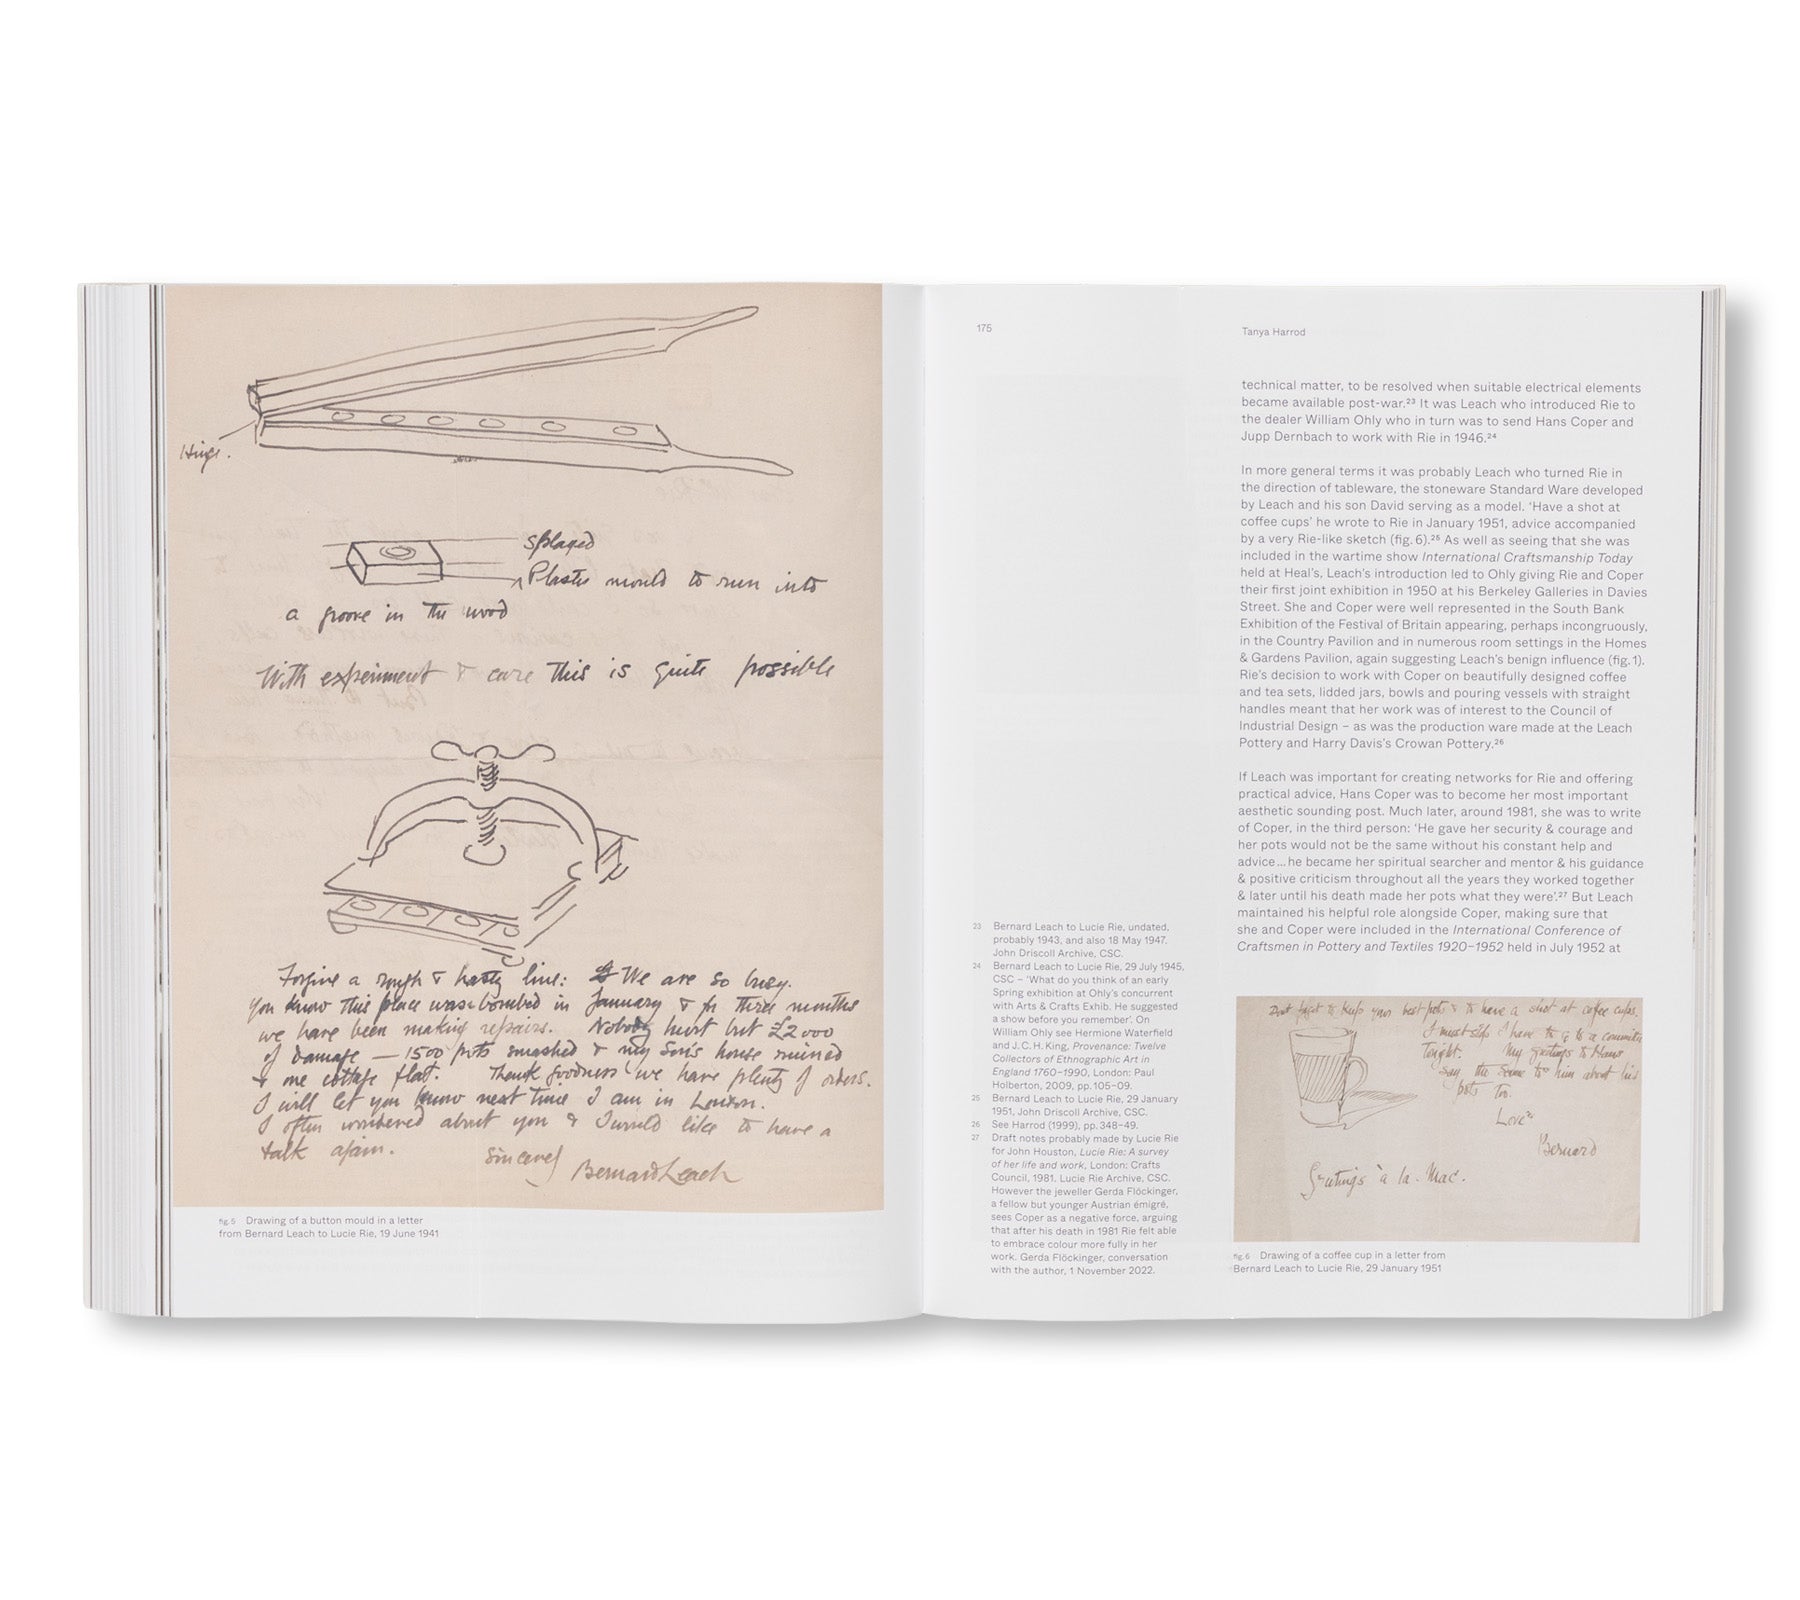 Hinge.
splayed
Plaster mould to run into
a groove in the wood
With experiment & care this is quite possible
Forgive a rough & hasty line: We are so busy.
You know this place was bombed in January & for three months
we have been making repairs. Nobody hurt but £2000
of damage — 1500 pots smashed & my Son's house ruined
& one cottage flat. Thank goodness we have plenty of orders.
I will let you know next time I am in London.
I often wondered about you & I would like to have a
talk again. Sincerely Bernard Leach
fig. 5 Drawing of a button mould in a letter
from Bernard Leach to Lucie Rie, 19 June 1941
175
Tanya Harrod
technical matter, to be resolved when suitable electrical elements
became available post-war.²³ It was Leach who introduced Rie to
the dealer William Ohly who in turn was to send Hans Coper and
Jupp Dernbach to work with Rie in 1946.²⁴
In more general terms it was probably Leach who turned Rie in
the direction of tableware, the stoneware Standard Ware developed
by Leach and his son David serving as a model. ‘Have a shot at
coffee cups’ he wrote to Rie in January 1951, advice accompanied
by a very Rie-like sketch (fig. 6).²⁵ As well as seeing that she was
included in the wartime show International Craftsmanship Today
held at Heal’s, Leach’s introduction led to Ohly giving Rie and Coper
their first joint exhibition in 1950 at his Berkeley Galleries in Davies
Street. She and Coper were well represented in the South Bank
Exhibition of the Festival of Britain appearing, perhaps incongruously,
in the Country Pavilion and in numerous room settings in the Homes
& Gardens Pavilion, again suggesting Leach’s benign influence (fig. 1).
Rie’s decision to work with Coper on beautifully designed coffee
and tea sets, lidded jars, bowls and pouring vessels with straight
handles meant that her work was of interest to the Council of
Industrial Design – as was the production ware made at the Leach
Pottery and Harry Davis’s Crowan Pottery.²⁶
If Leach was important for creating networks for Rie and offering
practical advice, Hans Coper was to become her most important
aesthetic sounding post. Much later, around 1981, she was to write
of Coper, in the third person: ‘He gave her security & courage and
her pots would not be the same without his constant help and
advice ... he became her spiritual searcher and mentor & his guidance
& positive criticism throughout all the years they worked together
& later until his death made her pots what they were’.²⁷ But Leach
maintained his helpful role alongside Coper, making sure that
she and Coper were included in the International Conference of
Craftsmen in Pottery and Textiles 1920–1952 held in July 1952 at
23 Bernard Leach to Lucie Rie, undated,
probably 1943, and also 18 May 1947.
John Driscoll Archive, CSC.
24 Bernard Leach to Lucie Rie, 29 July 1945,
CSC – ‘What do you think of an early
Spring exhibition at Ohly’s concurrent
with Arts & Crafts Exhib. He suggested
a show before you remember’. On
William Ohly see Hermione Waterfield
and J. C. H. King, Provenance: Twelve
Collectors of Ethnographic Art in
England 1760–1990, London: Paul
Holberton, 2009, pp. 105–09.
25 Bernard Leach to Lucie Rie, 29 January
1951, John Driscoll Archive, CSC.
26 See Harrod (1999), pp. 348–49.
27 Draft notes probably made by Lucie Rie
for John Houston, Lucie Rie: A survey
of her life and work, London: Crafts
Council, 1981, Lucie Rie Archive, CSC.
However the jeweller Gerda Flöckinger,
a fellow but younger Austrian émigré,
sees Coper as a negative force, arguing
that after his death in 1981 Rie felt able
to embrace colour more fully in her
work. Gerda Flöckinger, conversation
with the author, 1 November 2022.
Dont forget to keep your best pots & to have a shot at coffee cups.
I must stop I have to go to a committee
tonight. My greetings to Hans
Say the same to him about his
pots too.
Love
Bernard
Greetings à la. Mac.
fig. 6 Drawing of a coffee cup in a letter from
Bernard Leach to Lucie Rie, 29 January 1951